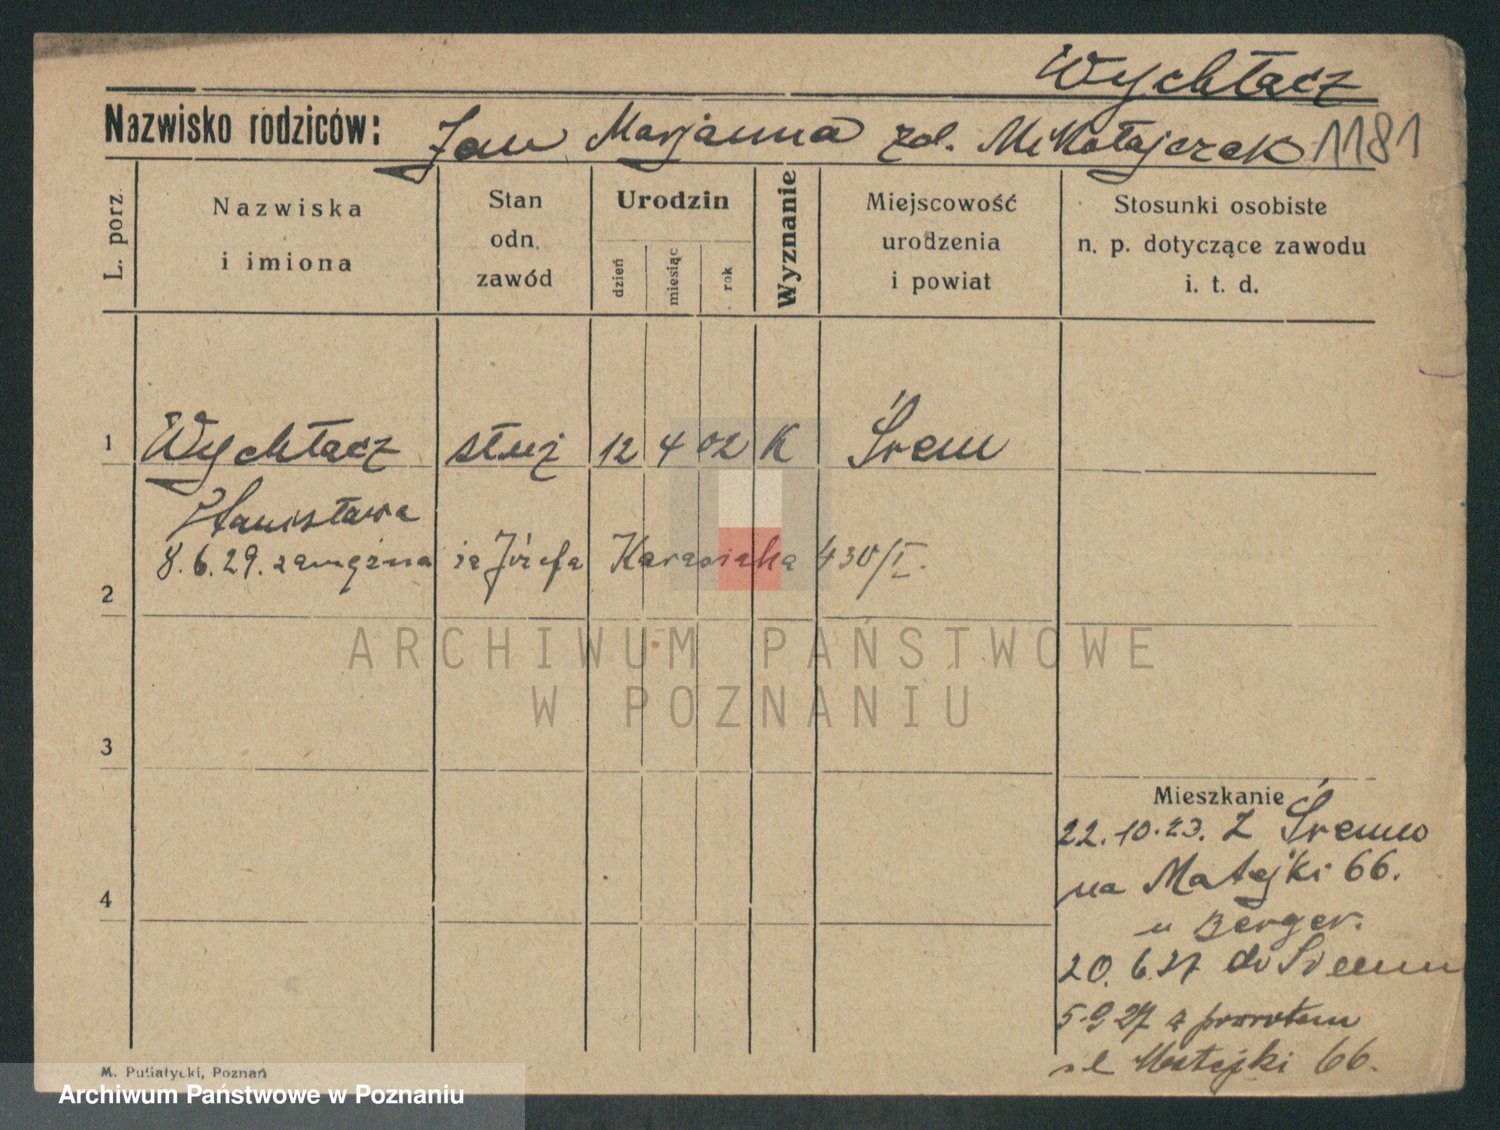 Wychłacz
Nazwisko rodziców: Jan Marjanna zd. Mikołajczak 1181
L. porz.
Nazwiska
i imiona
Stan
odn.
zawód
Urodzin
dzień
miesiąc
rok
Wyznanie
Miejscowość
urodzenia
i powiat
Stosunki osobiste
n. p. dotyczące zawodu
i. t. d.
1 Wychłacz służ 12 4 02 K Śrem
Stanisława
8.6.29. zamężna za Józefa 430/I.
2
3
4
Mieszkanie
22.10.23. Z Śremu
na Matejki 66.
u Berger.
20.6.27 do Śremu
5.9.27 z powrotem
ul Matejki 66.
M. Putiatycki, Poznań
ARCHIWUM PAŃSTWOWE
W POZNANIU
Archiwum Państwowe w Poznaniu